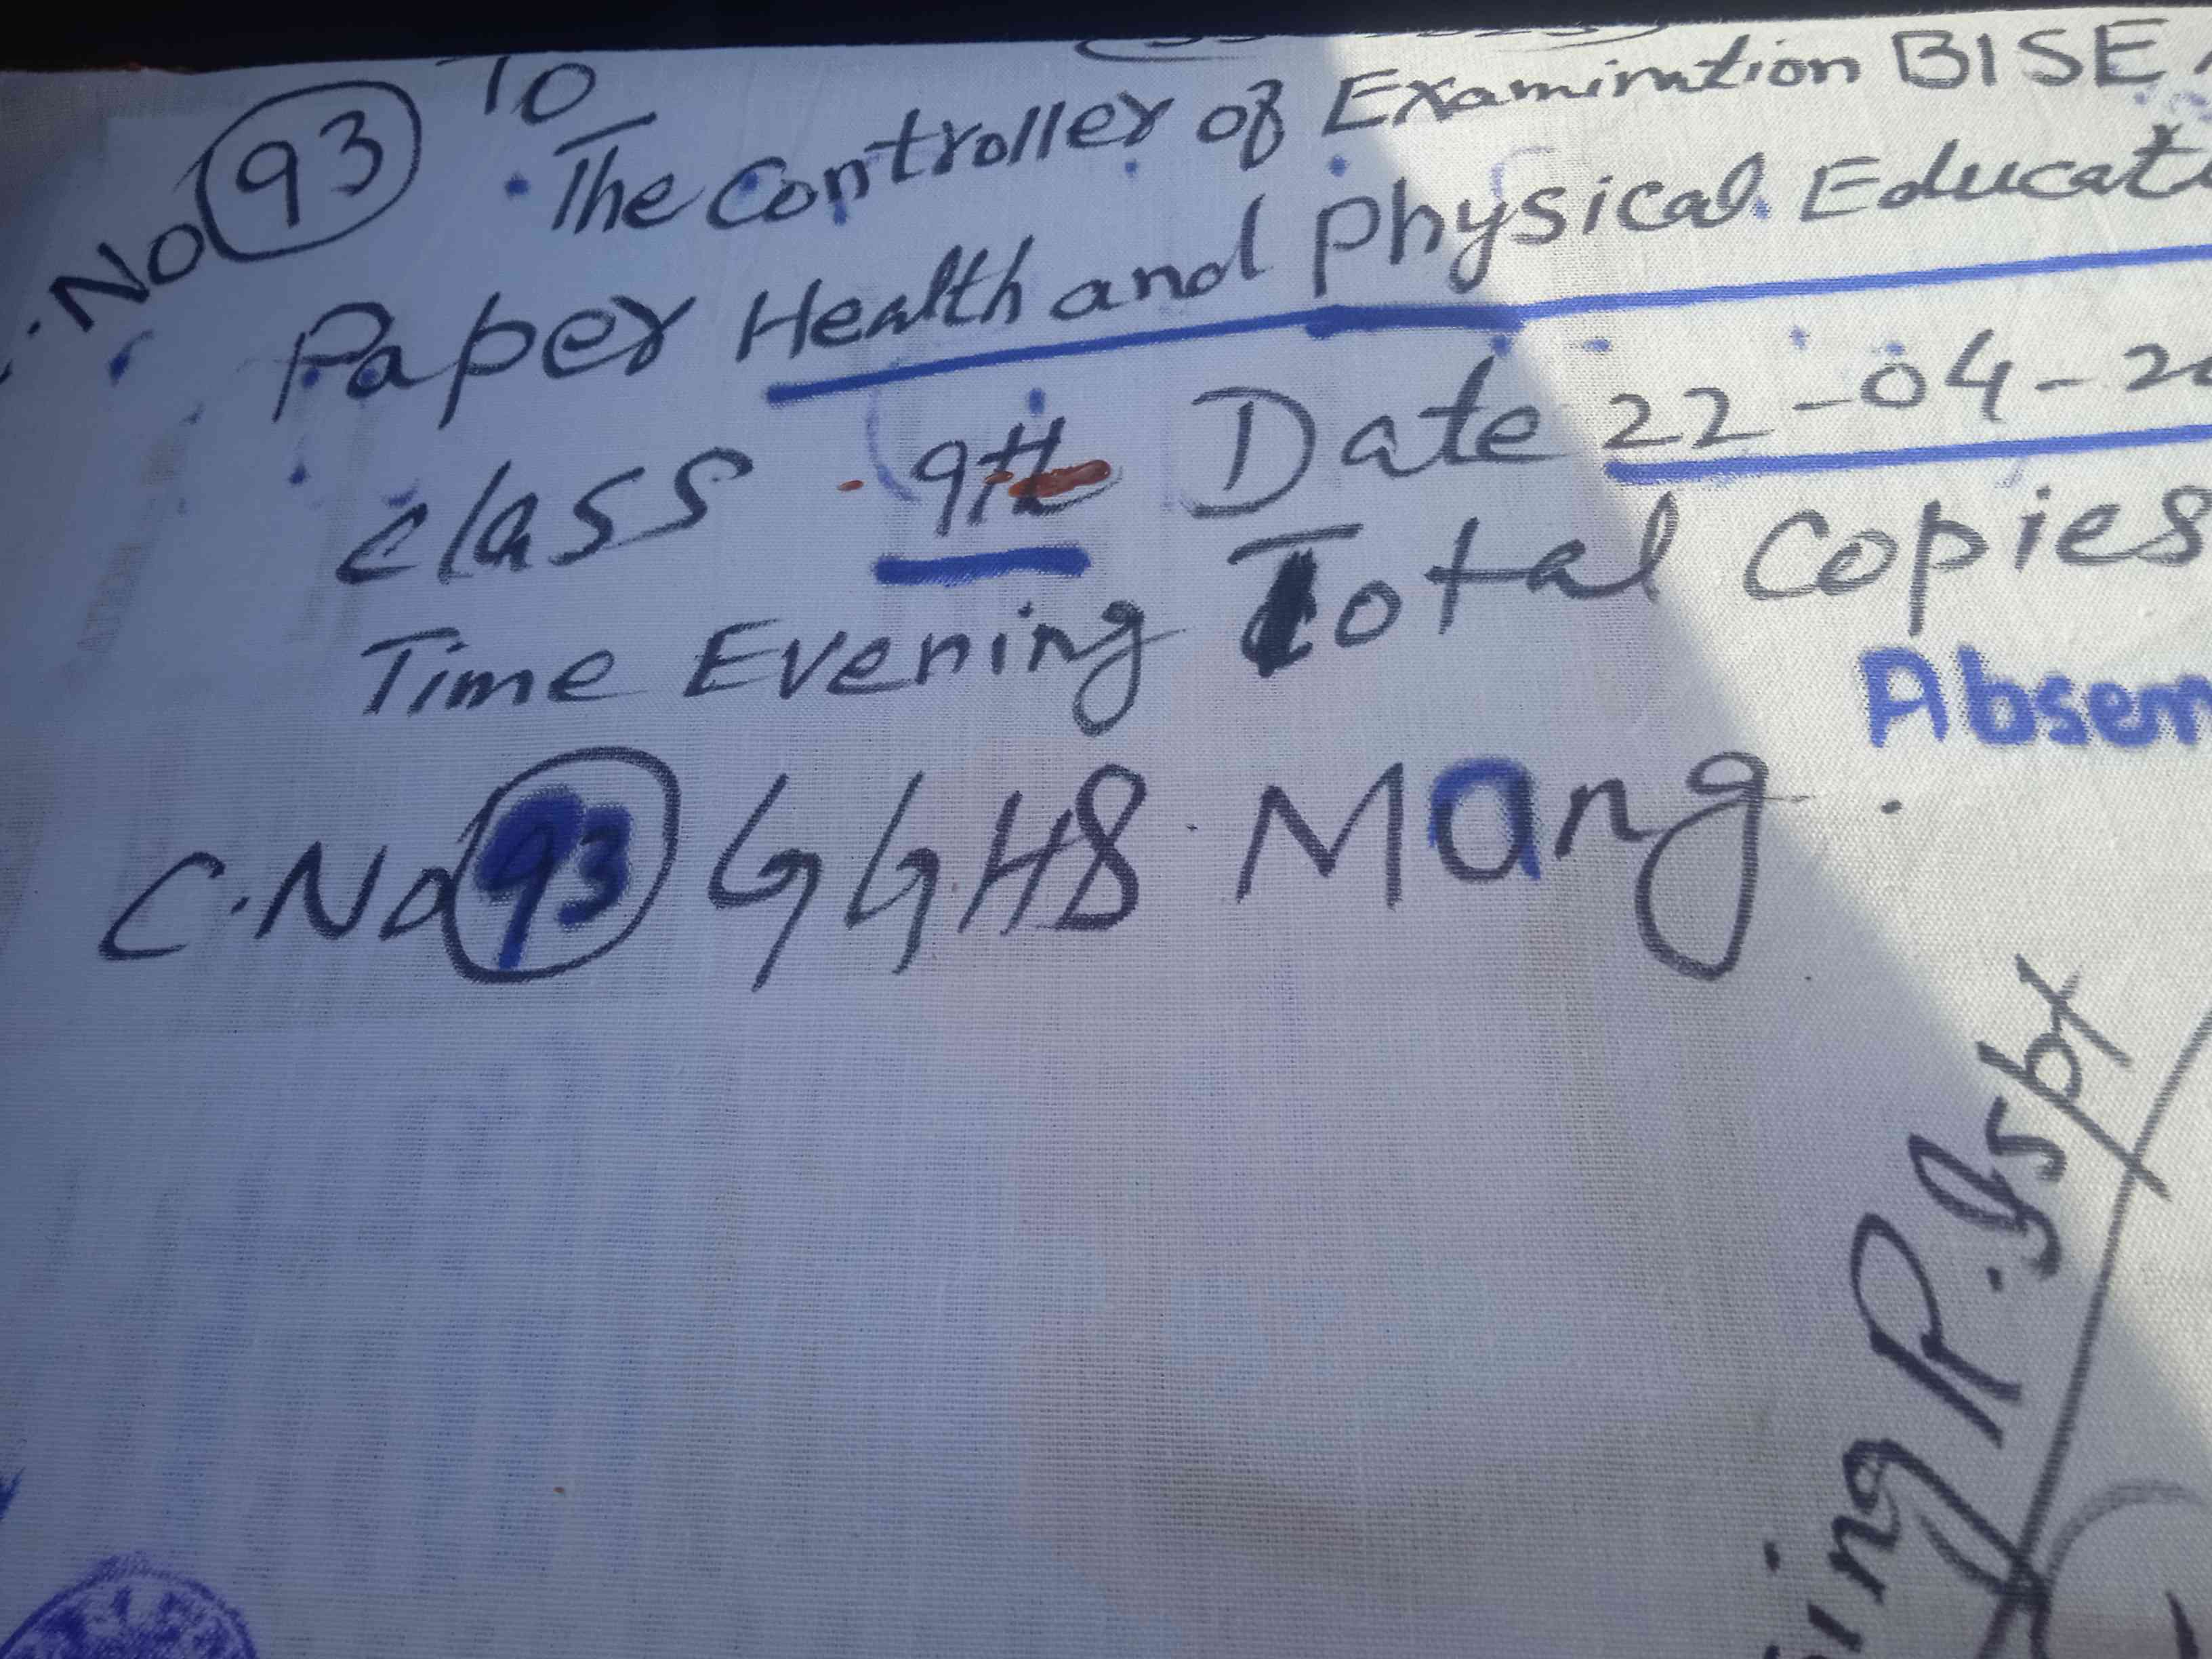 To
.No 93
The Controller of Examination BISE
Paper Health and Physical Educat
Class 9th Date 22-04-2
Time Evening Total Copies
Absen
C.No 93 GGHS Mang
ing P. Ispt